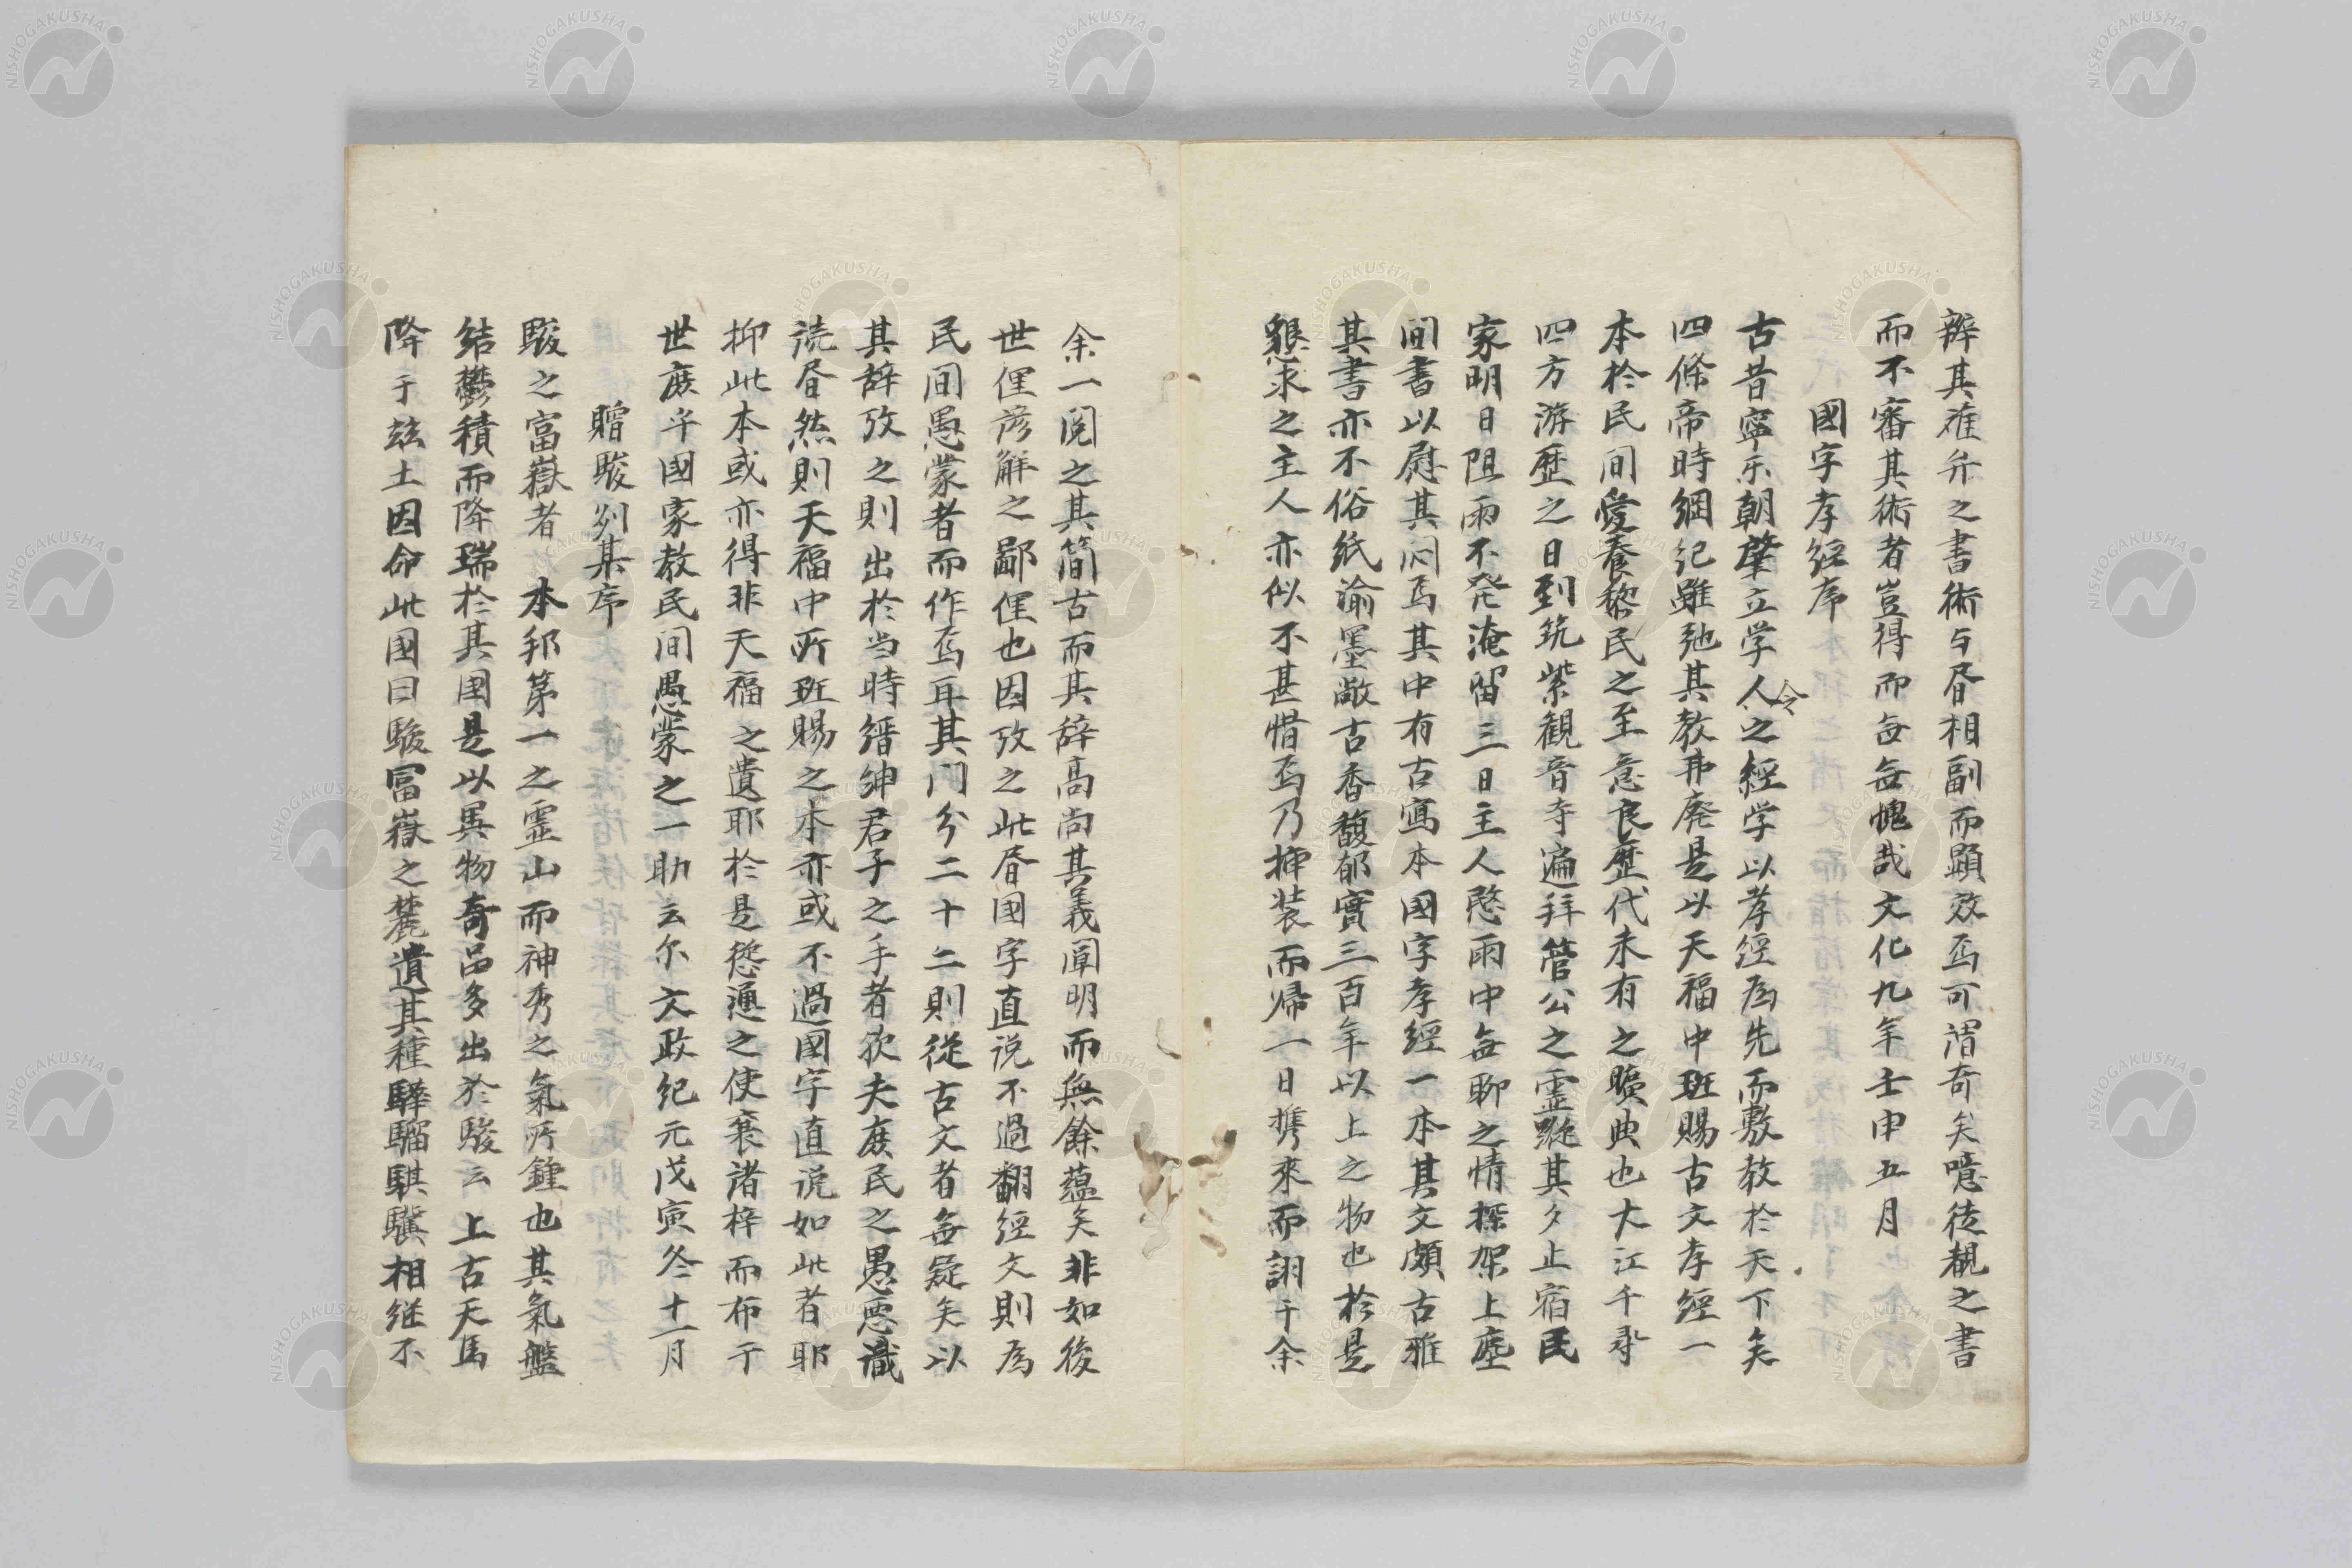 辨其难舛之書術与昏相副而顕效焉可謂奇矣噫徒覩之書
而不審其術者豈得而毎毎愧哉文化九年壬申五月
國字孝經序
古昔寧楽朝肇立学令人之經学以孝經為先而敷教於天下矣
四條帝時綱紀雖弛其教弗廃是以天福中班賜古文孝經一
本於民間愛養黎民之至意良歴代未有之曠典也大江千尋
四方游歴之日到筑紫観音寺遍拜管公之霊蹤其夕止宿民
家明日阻雨不発淹留三日主人愍雨中無聊之情探架上塵
间書以慰其闷焉其中有古寫本國字孝經一本其文頗古雅
其書亦不俗紙渝墨敝古香馥郁實三百年以上之物也於是
懇求之主人亦似不甚惜焉乃挿装而帰一日携來而詡于余
余一閲之其簡古而其辞高尚其義闡明而無餘蘊矣非如後
世俚諺解之鄙俚也因攷之此昏国字直说不過翻經文則為
民间愚蒙者而作焉耳其门分二十二則從古文者毎疑矣以
其辞攷之則出於当時縉紳君子之手者欤夫庶民之愚悪識
読昏然則天福中所班賜之本亦或不過國字直说如此者耶
抑此本或亦得非天福之遺耶於是慫慂之使衰諸梓而布于
世庶乎國家教民间愚蒙之一助云尓文政紀元戊寅冬十一月
贈駿刕某序
駿之富嶽者本邦第一之霊山而神秀之氣所鍾也其氣盤
结鬱積而降瑞於其国是以異物奇品多出於駿云上古天馬
降于玆土因命此國曰駿富嶽之麓遺其種驊騮騏驥相继不
NISHOGAKUSHA